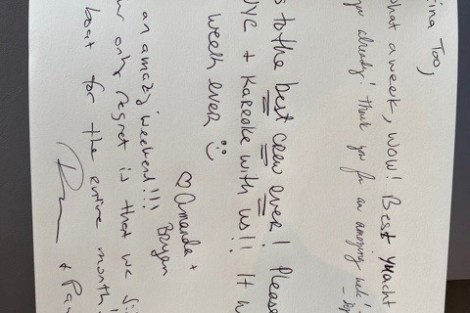 gina Too,
What a week, wow! Best yacht
you already! Thank you for an amazing week!
s to the best crew ever! Please
NYC + Kareoke with us!! It w
week ever
♡ Amanda +
Bryan
an amazing weekend!!!
ur only regret is that we di
boat for the entire month!